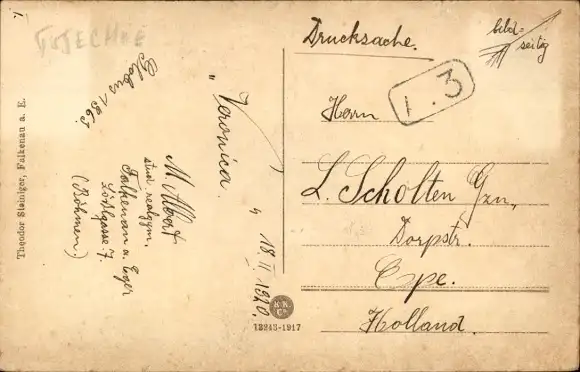 TSJECHIE
1.
Globus 1863.
"Veronica.
M. Albert
stud. realgym.
Falkenau a. Eger
(Böhmen.)
4 18. II 1920.
Theodor Steiniger, Falkenau a. E.
Drucksache.
bild=
seitig
1.3
Herrn
L. Scholten Gzn,
Dorpstr.
Epe.
Holland.
K.K.
Co
13243-1917